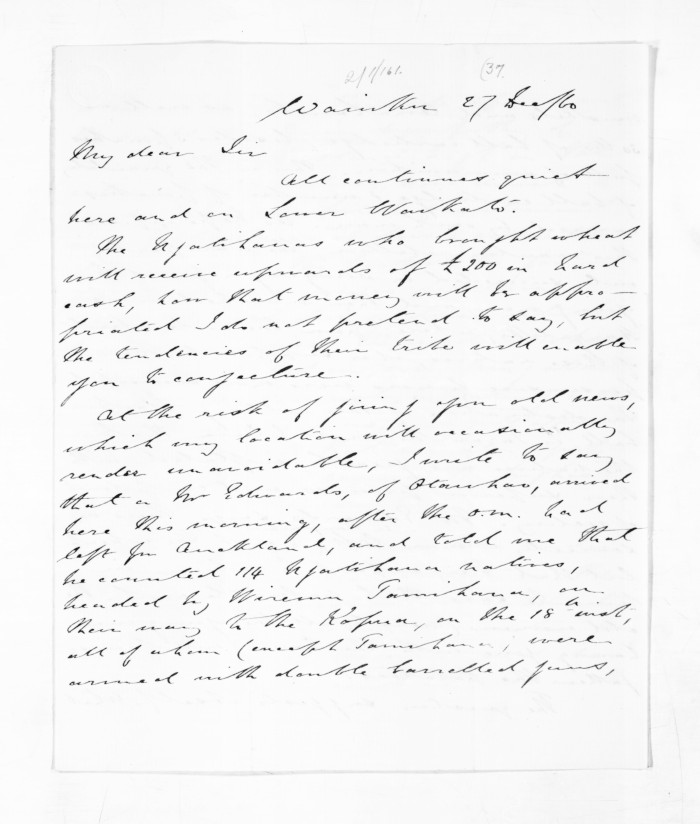 2/1/161. (37.
Waiuku 27 Dec/60
My dear Sir
All continues quiet
here and on Lower Waikato.
The Ngatihauas who brought wheat
will receive upwards of £200 in hard
cash, how that money will be appro-
priated I do not pretend to say, but
the tendencies of their tribe will enable
you to conjecture.
At the risk of giving you old news,
which my location will occasionally
render unavoidable, I write to say
that a Mr Edwards, of Otawhao, arrived
here this morning, after the o.m. had
left for Auckland, and told me that
he counted 114 Ngatihaua natives,
headed by Wiremu Tamihana, on
their way to the Kopua, on the 18th inst,
all of whom (except Tamihana, were
armed with double barrelled guns,